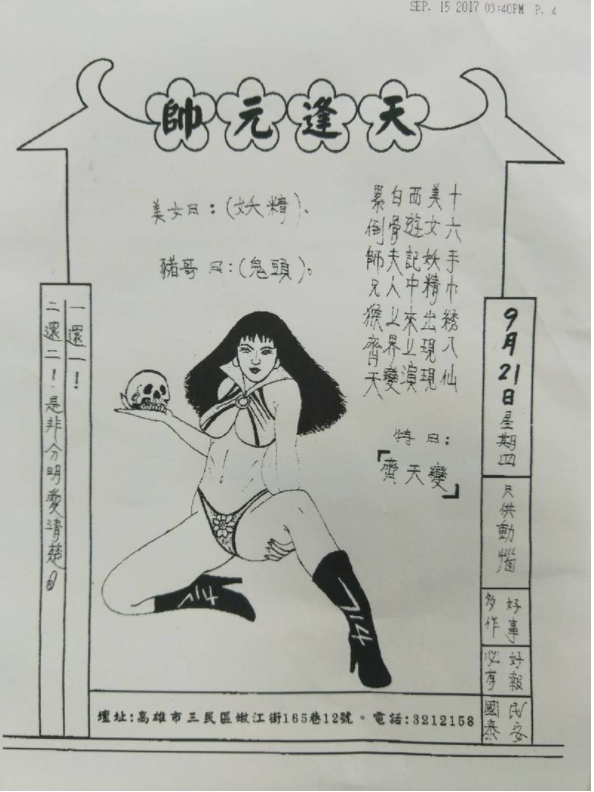 SEP. 15 2017 03:40PM P. 4
帥元逢天
美女曰：(妖精)。
豬哥曰：(鬼頭)。
十六手巾綉八仙
美女妖精出現現
西遊記中來上演
白骨夫人上界變
累倒師兄猴齊天
特曰：
「齊天變」
9月21日星期四
只供動惱
好事多作
好報必有
民安國泰
一還一！
二還二！是非分明愛清楚。
714
714
壇址:高雄市三民區嫩江街165巷12號。電話:3212158